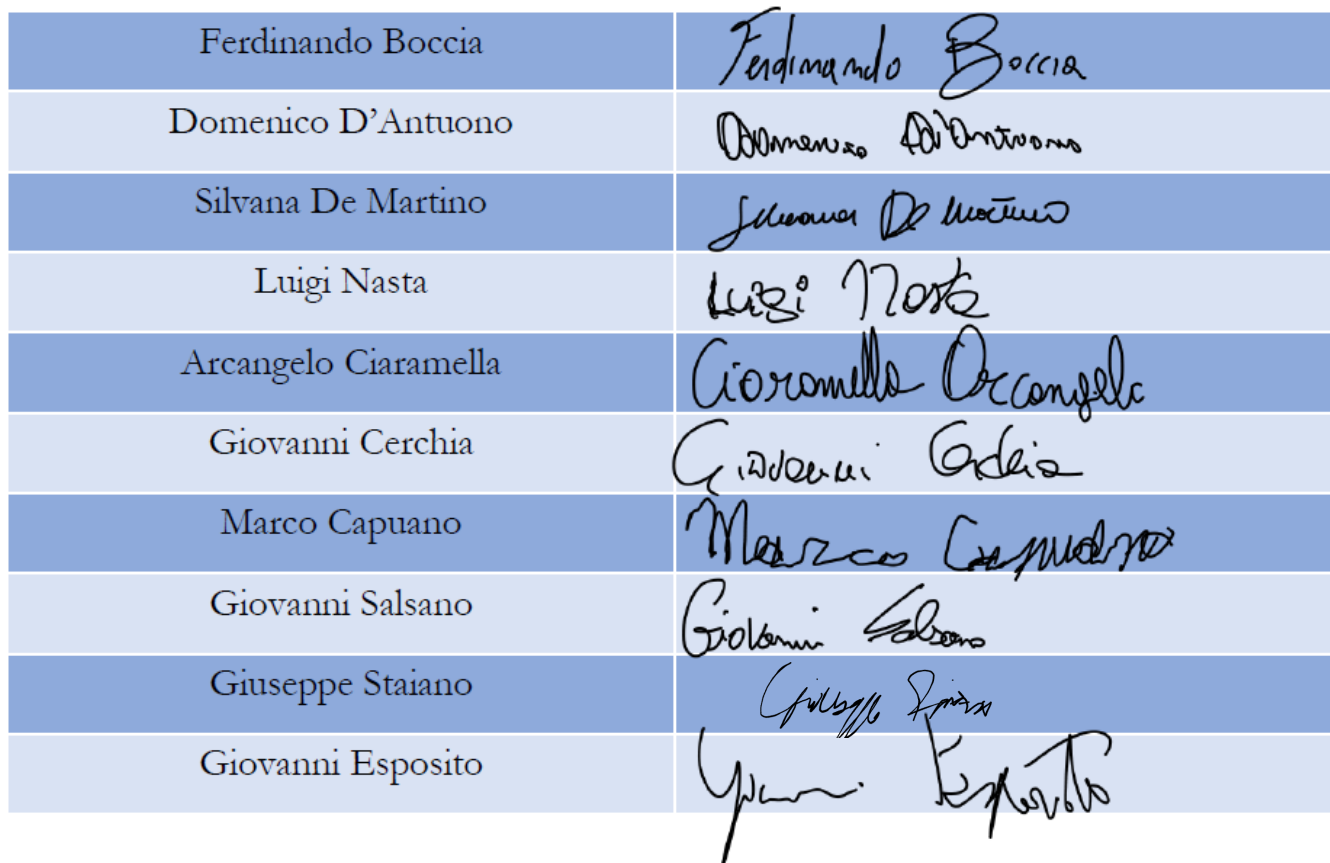 Ferdinando Boccia Ferdinando Boccia
Domenico D'Antuono Domenico D'Antuono
Silvana De Martino Silvana De Martino
Luigi Nasta Luigi Nasta
Arcangelo Ciaramella Ciaramella Arcangelo
Giovanni Cerchia Giovanni Cerchia
Marco Capuano Marco Capuano
Giovanni Salsano Giovanni Salsano
Giuseppe Staiano Giuseppe
Giovanni Esposito Esposito